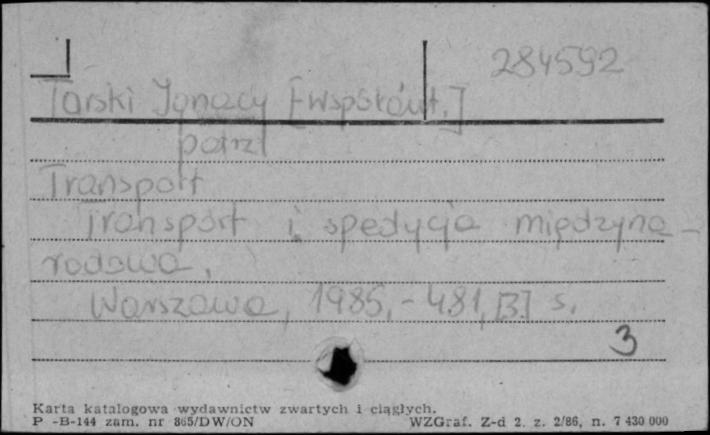 284592
Tarski Ignacy [współaut.]
patrz
Transport
Transport i spedycja międzyna-
rodowa,
Warszawa, 1985, - 481, [3] s.
3
Karta katalogowa wydawnictw zwartych i ciągłych.
P -B-144 zam. nr 865/DW/ON WZGraf. Z-d 2. z. 2/86, n. 7 430 000